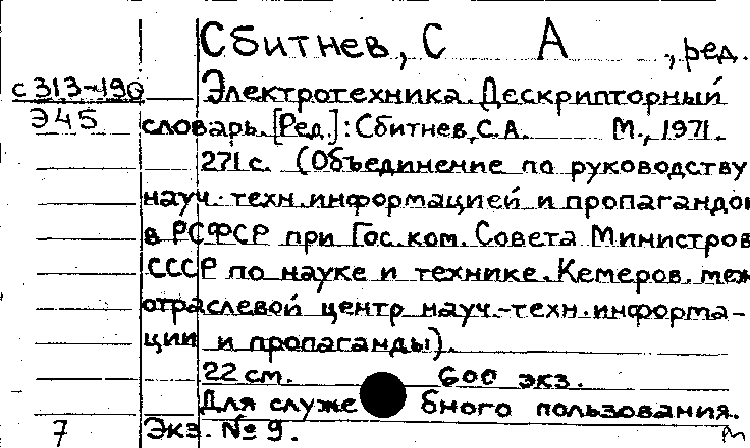 Сбитнев, С А , ред.
с313-190 Электротехника. Дескрипторный
Э45 словарь. [Ред.]: Сбитнев, С.А. М., 1971.
271 с. (Объединение по руководству
науч. техн. информацией и пропагандой
в РСФСР при Гос. ком. Совета Министров
СССР по науке и технике. Кемеров. меж
отраслевой центр науч.-техн. информа-
ции и пропаганды).
22 см. 600 экз.
Для служебного пользования.
7 Экз. № 9. м